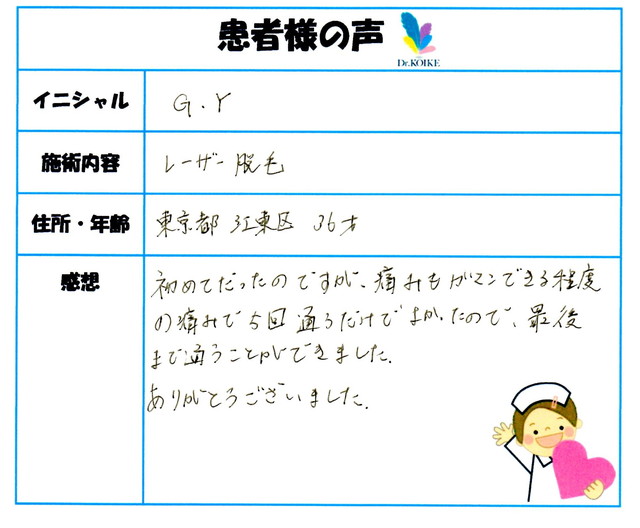 患者様の声
Dr.KOIKE
イニシャル G.Y
施術内容 レーザー脱毛
住所・年齢 東京都 江東区 36才
感想
初めてだったのですが、痛みもガマンできる程度
の痛みで5回通うだけでよかったので、最後
まで通うことができました。
ありがとうございました。